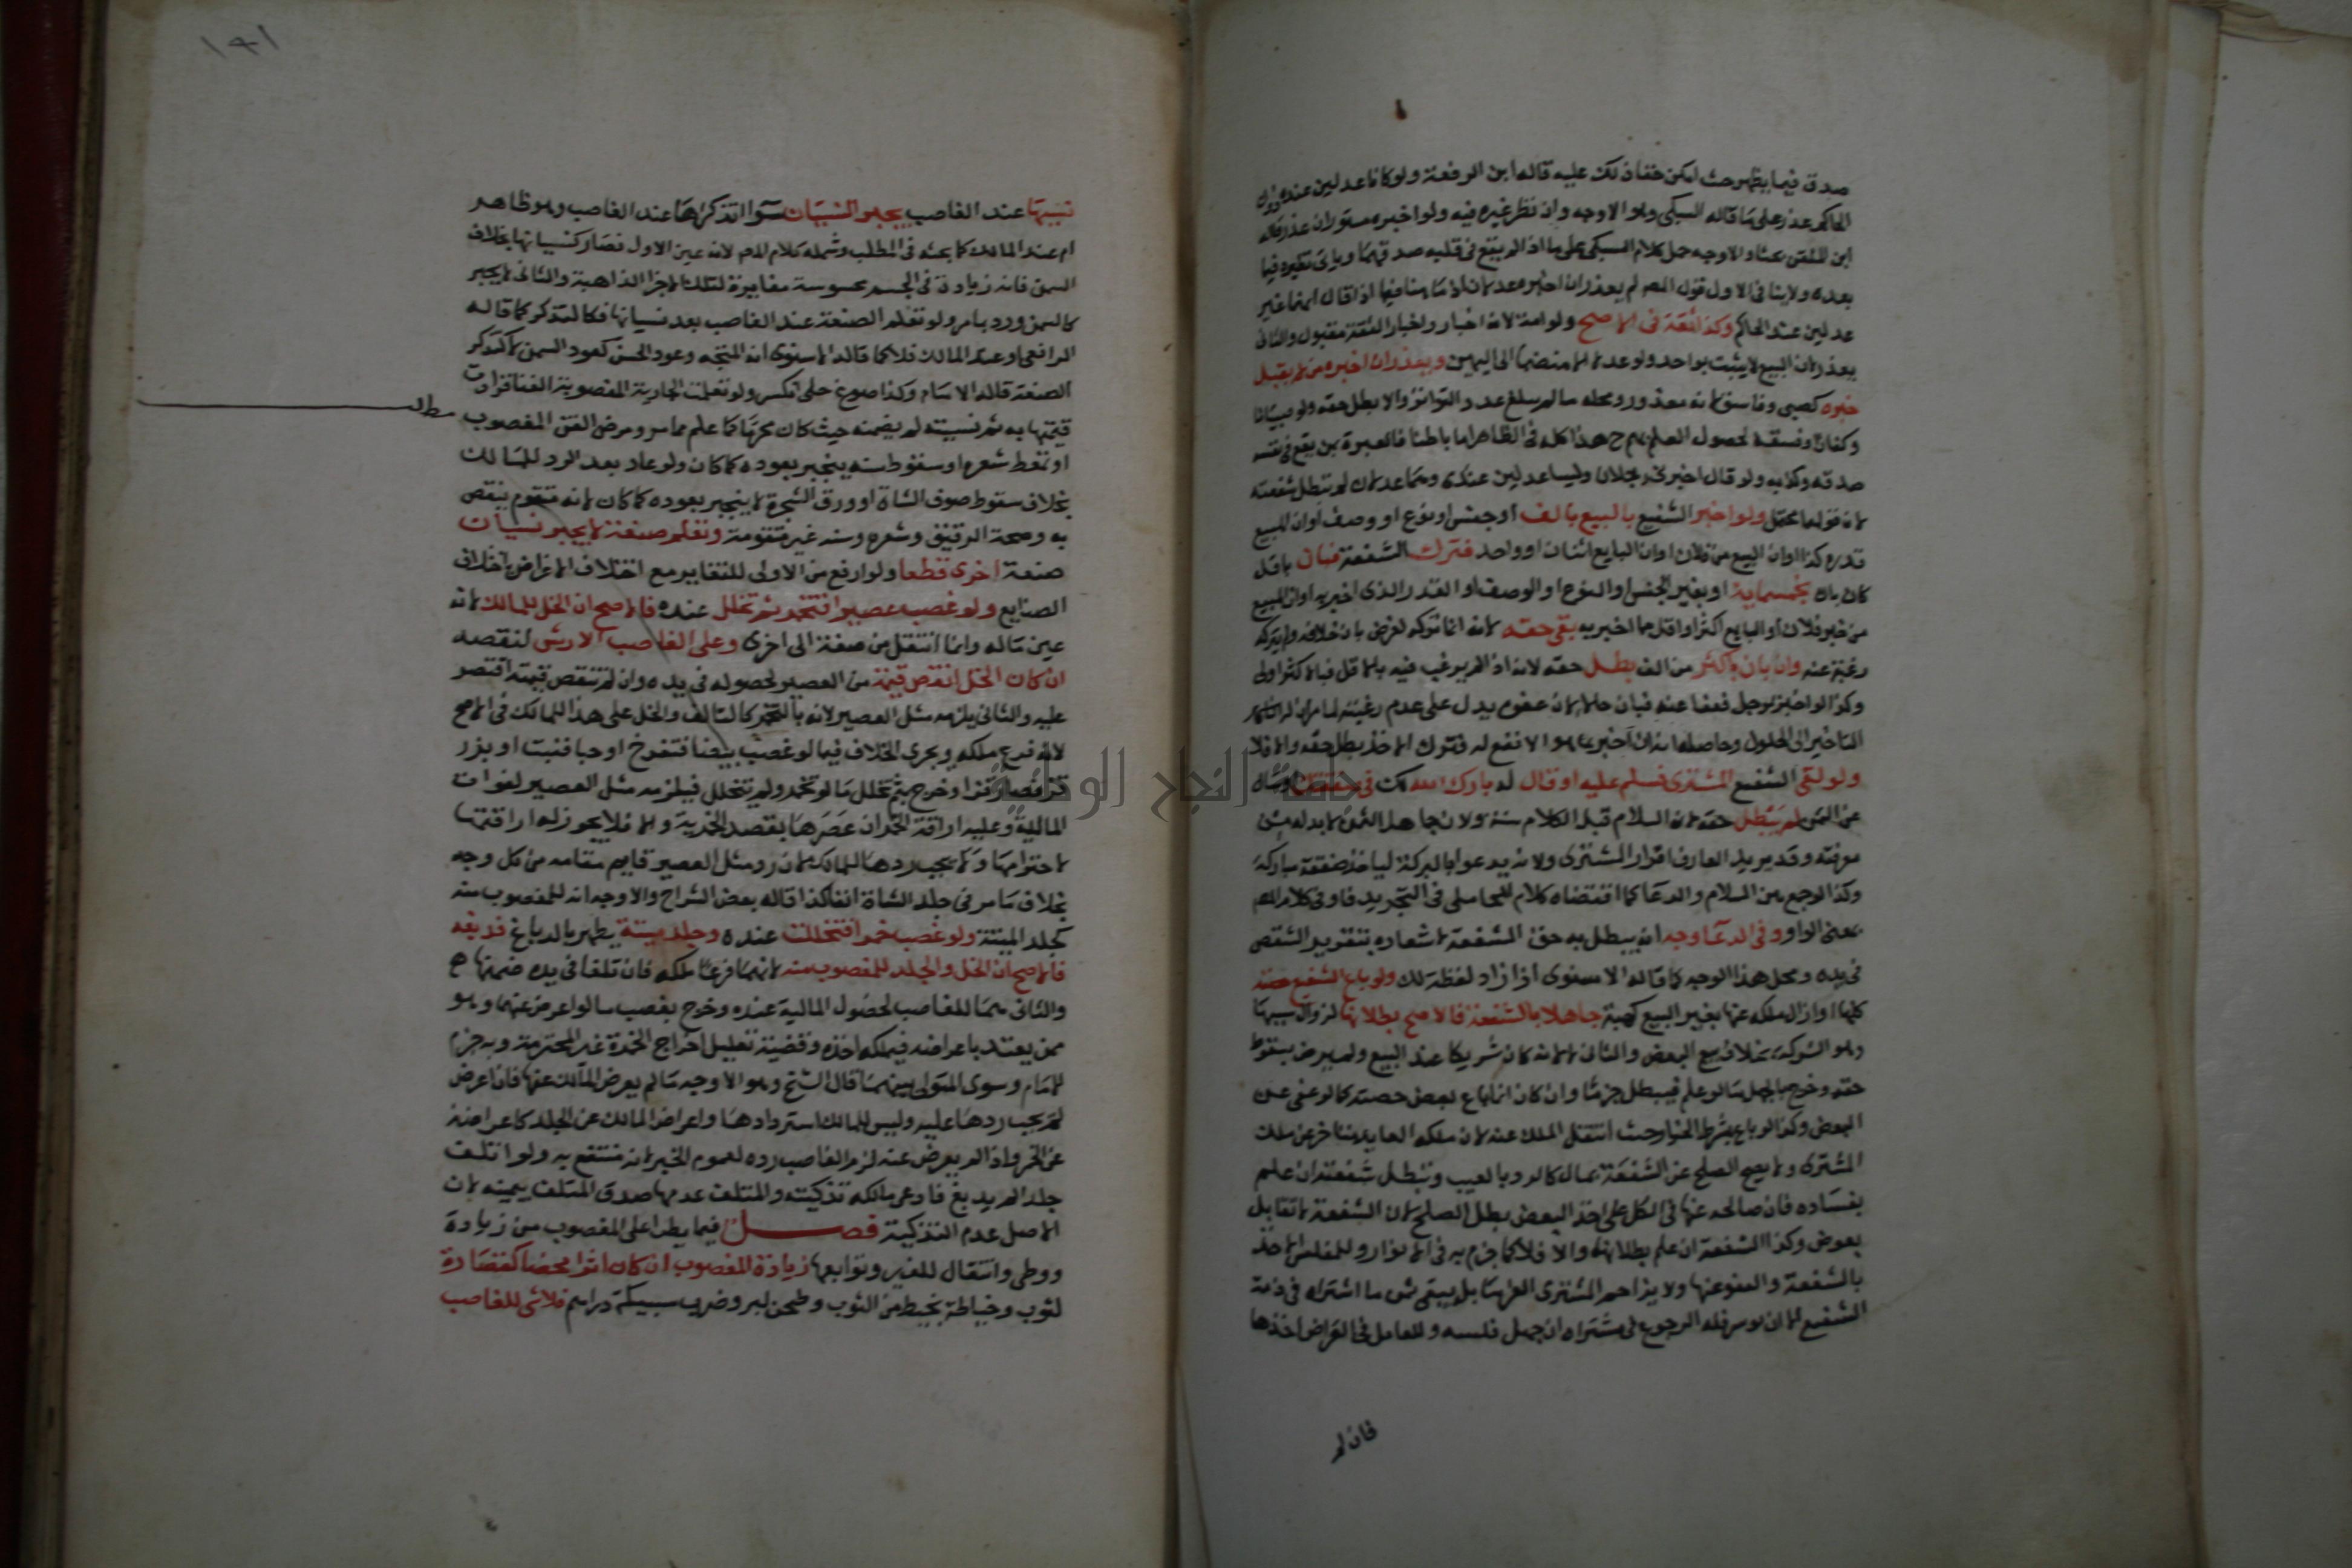 صدق فيما يظهر حيث امكن خفا ذلك عليه قاله ابن الرفعة ولو كانا عدلين عنده دون
الحاكم عذر على ما قاله السبكي وهو الاوجه وان نظر غيره فيه ولو اخبره مستوران عذر قاله
ابن الملقن بحثا والاوجه حمل كلام السبكي على ما اذا لم يقع في قلبه صدقهما وياتي نظيره فيما
بعده ولا ينافي الاول قول المص لم يعذر ان اخبره عدلان اذ ما هنا فيما اذا قال انهما غير
عدلين عند الحاكم وكذا ثقة في الاصح ولو امة لانه اخبار واخبار الثقة مقبول والثاني
يعذر لان البيع لا يثبت بواحد ولو عدلا الا منضما الى اليمين ويعذر ان اخبره من لا يقبل
خبره كصبي وفاسق لانه معذور ومحله ما لم يبلغ عدد التواتر والا بطل حقه ولو صبيانا
وكفارا وفسقة لحصول العلم بهم ح هذا كله في الظاهر اما باطنا فالعبرة بمن يقع في نفسه
صدقه وكذبه ولو قال اخبرني رجلان وليسا عدلين عندي وهما عدلان لم تبطل شفعته
لان قوله محتمل ولو اخبر الشفيع بالبيع بالف او جنس او نوع او وصف او ان المبيع
قدره كذا او ان البيع من فلان او ان البايع اثنان او واحد فترك الشفعة فبان باقل
كان بان بخمسماية او بغير الجنس او النوع او الوصف او القدر الذي اخبر به او ان المبيع
من غير فلان او البايع اكثر او اقل مما اخبر به بقي حقه لانه انما تركه لغرض بان خلافه ولم يتركه
رغبة عنه وان بان باكثر من الف بطل حقه لانه اذا لم يرغب فيه بالاقل فبالاكثر اولى
وكذا لو اخبر بمؤجل فعفا عنه فبان حالا لان عفوه يدل على عدم رغبته لما مر ان له
التاخير الى الحلول وحاصله انه ان اخبر بما هو الانفع له فترك الاخذ بطل حقه والا فلا
ولو لقي الشفيع المشتري فسلم عليه او قال له بارك الله لك في صفقتك او سال
عن الثمن لم يبطل حقه لان السلام قبل الكلام سنة ولان جاهل الثمن لا بد له من
معرفته وقد يريد العارف اقرار المشتري ولانه يدعو بالبركة لياخذ صفقة مباركة
وكذا لو جمع بين السلام والدعا كما اقتضاه كلام المحاملي في التجريد فاو في كلام المص
بمعنى الواو وفي الدعا وجه انه يبطل به حق الشفعة لاشعاره بتقرير الشقص
في يده ومحل هذا الوجه كما قاله الاسنوي اذا زاد لفظة لك ولو باع الشفيع حصته
كلها او ازال ملكه عنها بغير البيع كهبة جاهلا بالشفعة فالاصح بطلانها لزوال سببها
وهو الشركة بخلاف بيع البعض والثاني لا لانه كان شريكا عند البيع ولم يرض بسقوط
حقه وخرج بالجهل ما لو علم فيبطل جزما وان كان انما باع بعض حصته كما لو عفى عن
البعض وكذا لو باع بشرط الخيار حيث انتقل الملك عنه لان ملكه العايد متاخر عن ملك
المشتري ولا يصح الصلح عن الشفعة بمال كالرد بالعيب وتبطل شفعته ان علم
بفساده فان صالحه عنها في الكل على اخذ البعض بطل الصلح لان الشفعة لا تقابل
بعوض وكذا الشفعة ان علم بطلانه والا فلا كما جزم به في الانوار وللمفلس الاخذ
بالشفعة والعفو عنها ولا يزاحم المشتري الغرما بل يبقى ثمن ما اشتراه في ذمة
الشفيع الى ان يوسر فله الرجوع في مشتراه ان جهل فلسه وللعامل في القراض اخذها
فان لم
١٩١
تنبيها عند الغاصب يجبر النسيان سوا اتذكرها عند الغاصب وهو ظاهر
ام عند المالك كما بحثه في المطلب وشمله كلام المص لانه عين الاول فصار كنسيانها بخلاف
السمن فانه زيادة في الجسم محسوسة مغايرة لتلك الاجزا الذاهبة والثاني لا يجبر
كالسمن ورد بما مر ولو تعلم الصنعة عند الغاصب بعد نسيانها فكالتذكر كما قاله
الرافعي او عند المالك فلا كما قاله الاسنوي انه المتجه وعود الحسن كعود السمن لا كتذكر
الصنعة قاله الامام وكذا صوغ حلي انكسر ولو تعلمت الجارية المغصوبة الغنا فزادت
قيمتها به ثم نسيته لم يضمنه حيث كان محرما كما علم مما مر ومرض القن المغصوب
مطلب
او تمعط شعره او سقوط سنه ينجبر بعوده كما كان ولو عاد بعد الرد للمالك
بخلاف سقوط صوف الشاة او ورق الشجرة لا ينجبر بعوده كما كان لانه متقوم ينقص
به وصحة الرقيق وشعره وسنه غير متقومة وتعلم صنعة لا يجبر نسيان
صنعة اخرى قطعا ولو ارفع من الاولى للتغاير مع اختلاف الاغراض باختلاف
الصنايع ولو غصب عصيرا فتخمر ثم تخلل عنده فالاصح ان الخل للمالك لانه
عين ماله وانما انتقل من صفة الى اخرى وعلى الغاصب الارش لنقصه
ان كان الخل انقص قيمة من العصير لحصوله في يده وان لم تنقص قيمته اقتصر
عليه والثاني يلزمه مثل العصير لانه بالتخمر كالتالف والخل على هذا للمالك في الاصح
لانه فرع ملكه ويجري الخلاف فيما لو غصب بيضا فتفرخ او حبا فنبت او بزر
قز فصار قزا وخرج بثم تخلل ما لو تخمر ولم يتخلل فيلزمه مثل العصير لفوات
المالية وعليه اراقة الخمر ان عصرها بقصد الخمرية والا فلا يجوز له اراقتها
لاحترامها ولا يجب ردها للمالك لان رد مثل العصير قايم مقامه من كل وجه
بخلاف ما مر في جلد الشاة انفا كذا قاله بعض الشراح والاوجه انه للمغصوب منه
كجلد الميتة ولو غصب خمرا فتخللت عنده وجلد ميتة يطهر بالدباغ فدبغه
فالاصح ان الخل والجلد للمغصوب منه لانهما فرعا ملكه فان تلفا في يده ضمنهما ح
والثاني هما للغاصب لحصول المالية عنده وخرج بغصب ما لو اعرض عنهما وهو
ممن يعتد باعراضه فيملكه اخذه وقضية تعليل اخراج الخمرة غير المحترمة وبه جزم
الامام وسوى المتولي بينهما قال الشيخ وهو الاوجه ما لم يعرض المالك عنها فان اعرض
لم يجب ردها عليه وليس للمالك استردادها واعراض المالك عن الجلد كاعراضه
عن الخمر واذا لم يعرض عنه لزم الغاصب رده لعموم الخبر لانه منتفع به ولو اتلف
جلدا لم يدبغ فادعى مالكه تذكيته والمتلف عدمها صدق المتلف بيمينه لان
الاصل عدم التذكية فصل فيما يطرا على المغصوب من زيادة
ووطي وانتقال للغير وتوابعها زيادة المغصوب ان كان اثرا محضا كقصارة
لثوب وخياطة بخيط من الثوب وطحن لبر وضرب سبيكة دراهم فلا شي للغاصب
جامعة النجاح الوطنية